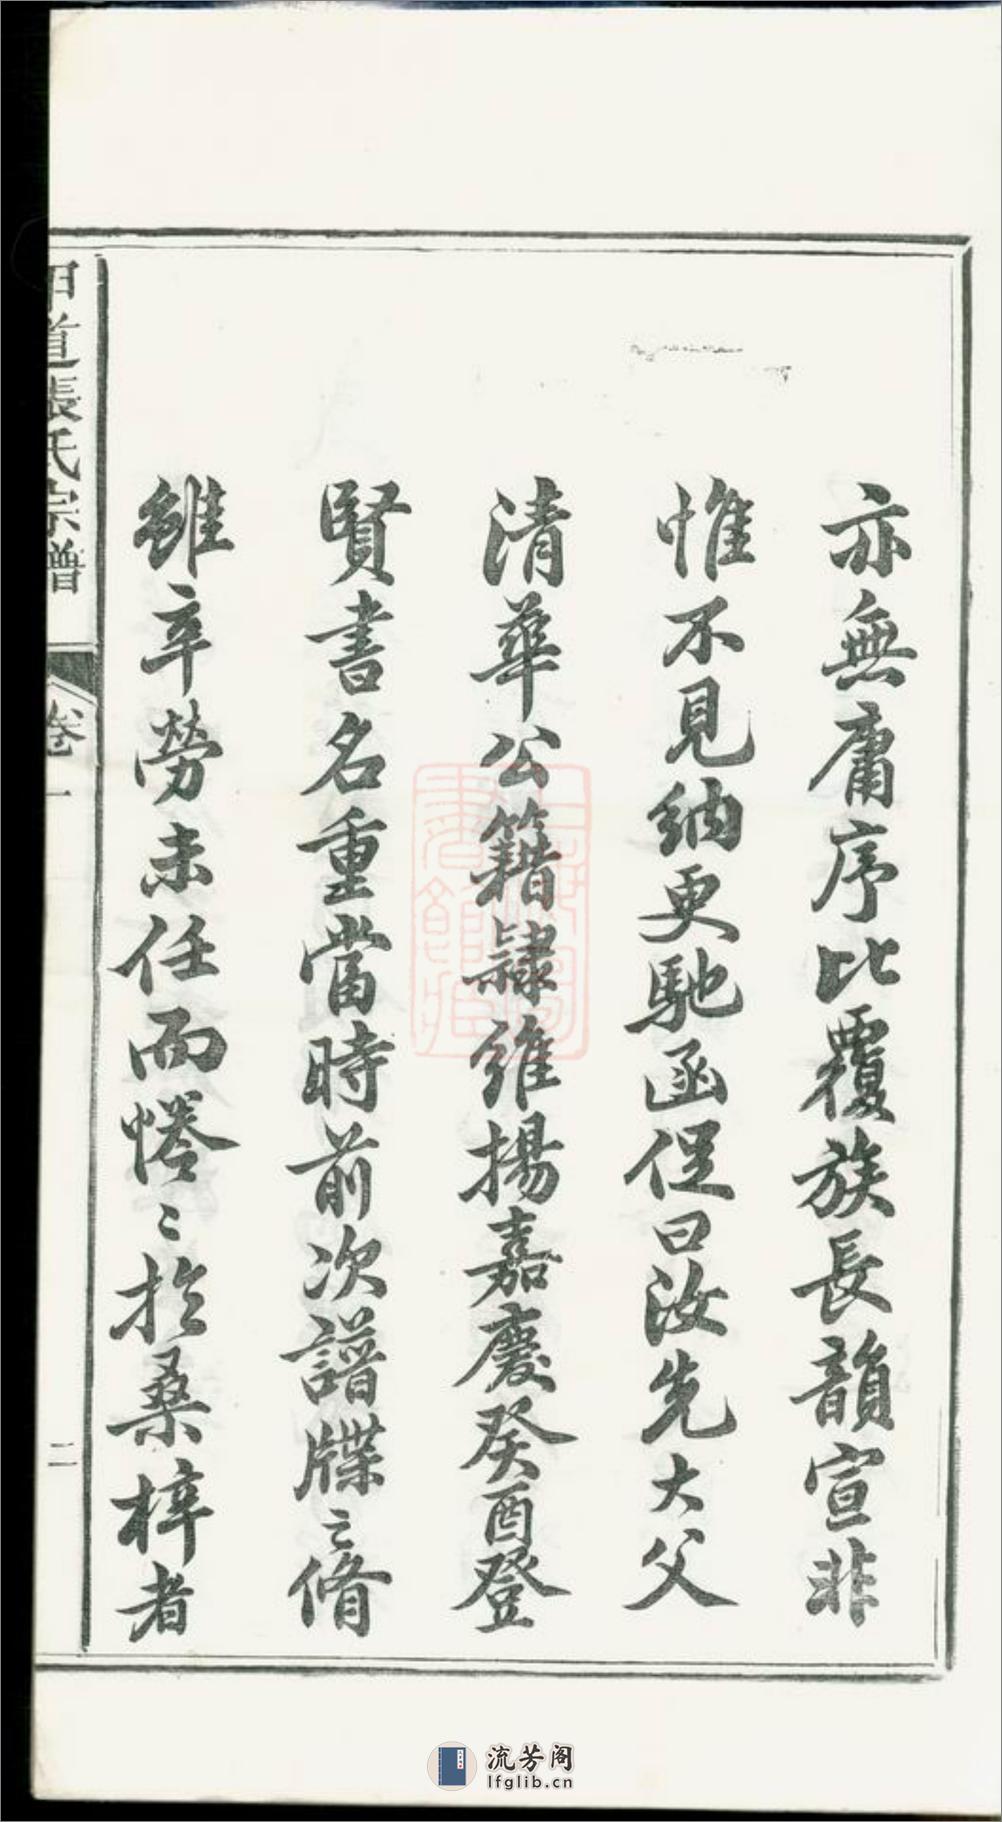 亦無庸序比覆族長韻宣非
惟不見納更馳函促曰汝先大父
清華公籍隸維揚嘉慶癸酉登
賢書名重當時前次譜牒之脩
雖辛勞未任而惓〻於桑梓者
甲道張氏宗譜
卷一
二
流芳阁
lfglib.cn